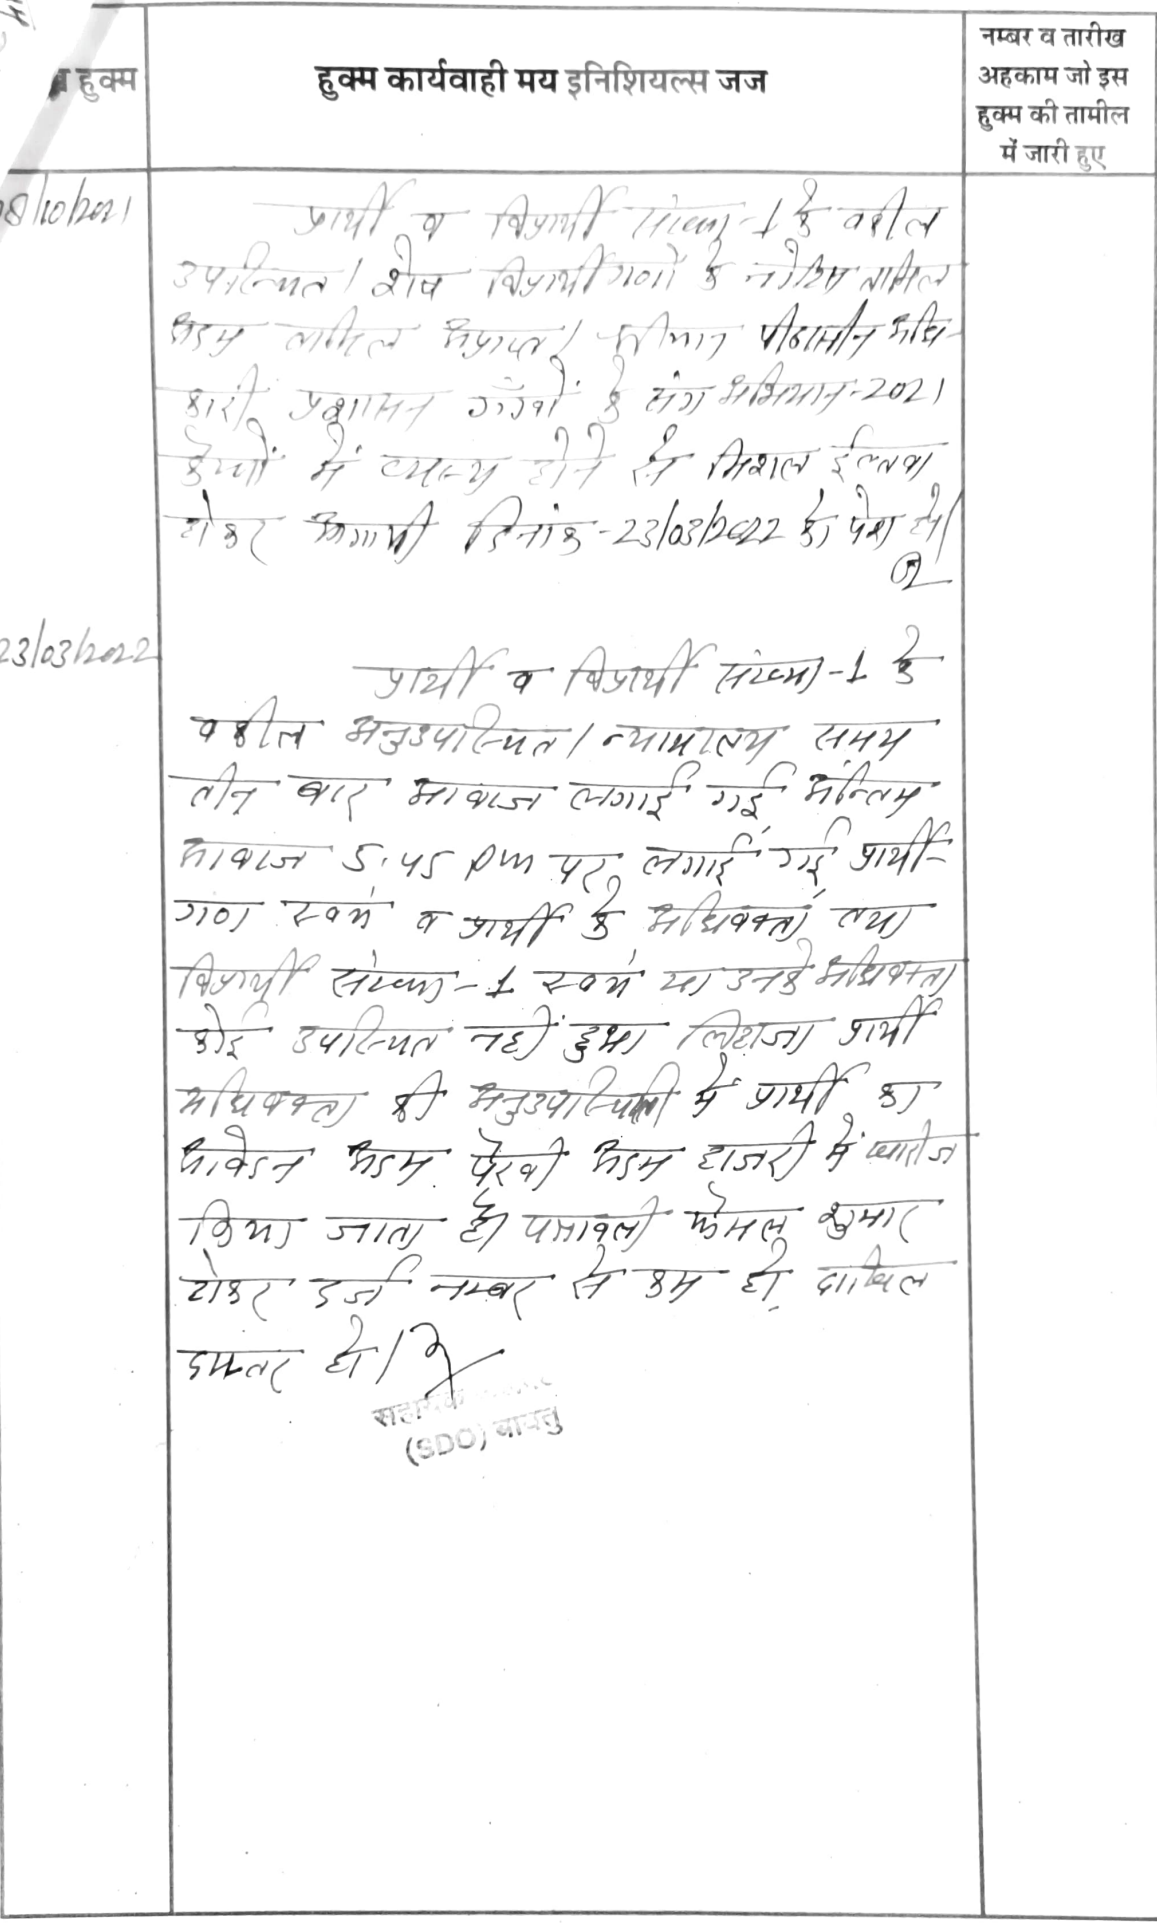 हुक्म
हुक्म कार्यवाही मय इनिशियल्स जज
नम्बर व तारीख
अहकाम जो इस
हुक्म की तामील
में जारी हुए
8/10/2021
प्रार्थी व विप्रार्थी संख्या-1 के वकील
उपस्थित। शेष विप्रार्थीगणों के नोटिस तामिल
अदम तामिल अप्राप्त। श्रीमान पीठासीन अधि-
कारी प्रशासन गॉंवों के संग अभियान-2021
कैम्पों में व्यस्थ होने से मिशल ईल्तवा
होकर आगामी दिनांक-23/03/2022 को पेश हो।
23/03/2022
प्रार्थी व विप्रार्थी संख्या-1 के
वकील अनुउपस्थित। न्यायालय समय
तीन बार आवाज लगाई गई, अन्तिम
आवाज 5.45 pm पर लगाई गई, प्रार्थी-
गण स्वयं व प्रार्थी के अधिवक्ता, तथा
विप्रार्थी संख्या-1 स्वयं या उनके अधिवक्ता
कोई उपस्थित नहीं हुआ लिहाजा प्रार्थी
अधिवक्ता की अनुउपस्थिती में प्रार्थी का
आवेदन अदम पैरवी अदम हाजरी में खारीज
किया जाता है। पत्रावली फैसल शुमार
होकर दर्ज नम्बर से कम हो, दाखिल
दफ्तर हो।
सहायक
(SDO) बायतु